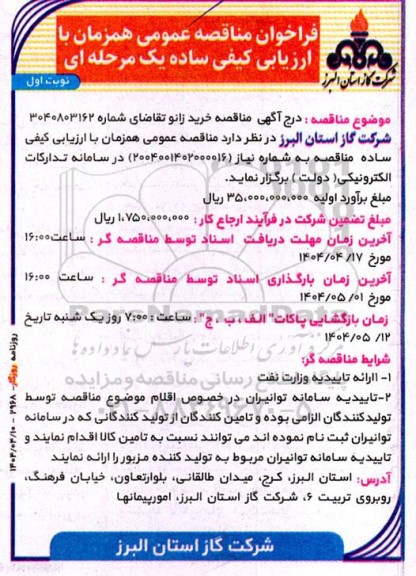 فراخوان مناقصه عمومی همزمان با
ارزیابی کیفی ساده یک مرحله ای
شرکت گاز استان البرز
نوبت اول
موضوع مناقصه : درج آگهی مناقصه خرید زانو تقاضای شماره ۳۰۴۰۸۰۳۱۶۲
شرکت گاز استان البرز در نظر دارد مناقصه عمومی همزمان با ارزیابی کیفی
ساده مناقصه به شماره نیاز (۲۰۰۴۰۰۱۴۰۲۰۰۰۰۱۶) در سامانه تدارکات
الکترونیکی( دولت ) برگزار نماید.
مبلغ برآورد اولیه ۳۵،۰۰۰،۰۰۰،۰۰۰ ریال
مبلغ تضمین شرکت در فرآیند ارجاع کار : ۱،۷۵۰،۰۰۰،۰۰۰ ریال
آخرین زمان مهلت دریافت اسناد توسط مناقصه گر : ساعت ۱۶:۰۰
مورخ ۱۷/ ۱۴۰۴/۰۴
آخرین زمان بارگذاری اسناد توسط مناقصه گر : ساعت ۱۶:۰۰
مورخ ۰۱/ ۱۴۰۴/۰۵
زمان بازگشایی پاکات" الف ، ب ، ج" : ساعت : ۷:۰۰ روز یک شنبه تاریخ
۱۲/ ۱۴۰۴/۰۵
شرایط مناقصه گر:
۱- اارائه تاییدیه وزارت نفت
۲-تاییدیه سامانه توانیران در خصوص اقلام موضوع مناقصه توسط
تولیدکنندگان الزامی بوده و تامین کنندگان از تولید کنندگانی که در سامانه
توانیران ثبت نام نموده اند می توانند نسبت به تامین کالا اقدام نمایند و
تاییدیه سامانه توانیران مربوط به تولید کننده مزبور را ارائه نمایند
آدرس: استان البرز، کرج، میدان طالقانی، بلوارتعاون، خیابان فرهنگ،
روبروی تربیت ۶، شرکت گاز استان البرز، امورپیمانها
شرکت گاز استان البرز
روزنامه روزگار - ۲۹۶۸ - ۱۴۰۴/۰۴/۱۰